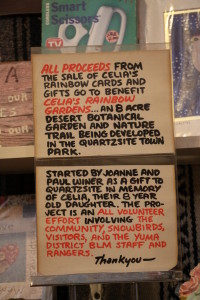 Smart
Scissors
ALL PROCEEDS FROM
THE SALE OF CELIA'S
RAINBOW CARDS AND
GIFTS GO TO BENEFIT
CELIA'S RAINBOW
GARDENS...AN 8 ACRE
DESERT BOTANICAL
GARDEN AND NATURE
TRAIL BEING DEVELOPED
IN THE QUARTZSITE TOWN
PARK.
STARTED BY JOANNE AND
PAUL WINER AS A GIFT TO
QUARTZSITE IN MEMORY
OF CELIA, THEIR 8 YEAR
OLD DAUGHTER. THE PRO-
JECT IS AN ALL VOLUNTEER
EFFORT INVOLVING THE
COMMUNITY, SNOWBIRDS,
VISITORS, AND THE YUMA
DISTRICT BLM STAFF AND
RANGERS.
Thankyou—